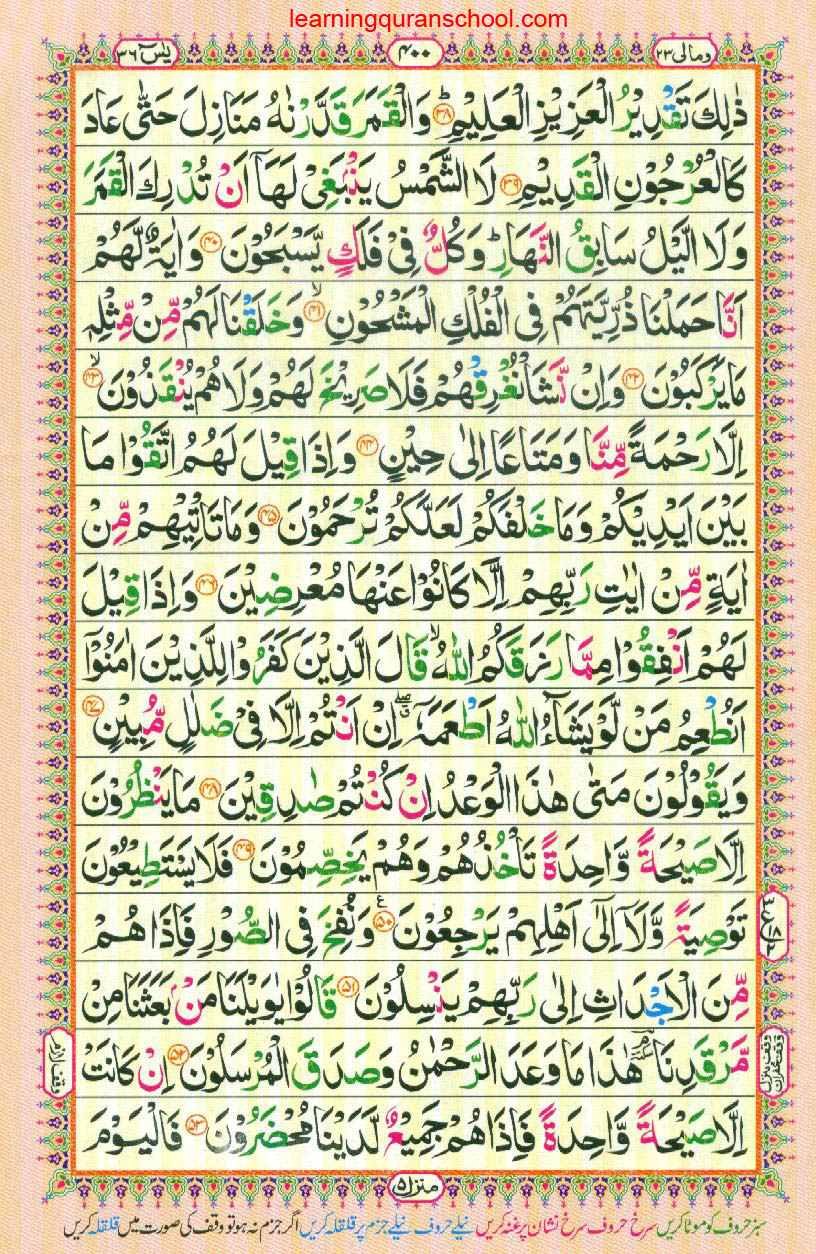 learningquranschool.com
یٰسٓ ٣٦ ۴۰۰ ومالی ۲۳
ذٰلِكَ تَقْدِيْرُ الْعَزِيْزِ الْعَلِيْمِؕ ۳۸ وَالْقَمَرَ قَدَّرْنٰهُ مَنَازِلَ حَتّٰى عَادَ
كَالْعُرْجُوْنِ الْقَدِيْمِ ۳۹ لَا الشَّمْسُ يَنْۢبَغِىْ لَهَاۤ اَنْ تُدْرِكَ الْقَمَرَ
وَلَا الَّيْلُ سَابِقُ النَّهَارِؕ وَكُلٌّ فِىْ فَلَكٍ يَّسْبَحُوْنَ ۴۰ وَاٰيَةٌ لَّهُمْ
اَنَّا حَمَلْنَا ذُرِّيَّتَهُمْ فِى الْفُلْكِ الْمَشْحُوْنِۙ ۴۱ وَخَلَقْنَا لَهُمْ مِّنْ مِّثْلِهٖ
مَا يَرْكَبُوْنَ ۴۲ وَاِنْ نَّشَاْ نُغْرِقْهُمْ فَلَا صَرِيْخَ لَهُمْ وَلَا هُمْ يُنْقَذُوْنَۙ ۴۳
اِلَّا رَحْمَةً مِّنَّا وَمَتَاعًا اِلٰى حِيْنٍ ۴۴ وَاِذَا قِيْلَ لَهُمُ اتَّقُوْا مَا
بَيْنَ اَيْدِيْكُمْ وَمَا خَلْفَكُمْ لَعَلَّكُمْ تُرْحَمُوْنَ ۴۵ وَمَا تَاْتِيْهِمْ مِّنْ
اٰيَةٍ مِّنْ اٰيٰتِ رَبِّهِمْ اِلَّا كَانُوْا عَنْهَا مُعْرِضِيْنَ ۴۶ وَاِذَا قِيْلَ
لَهُمْ اَنْفِقُوْا مِمَّا رَزَقَكُمُ اللّٰهُۙ قَالَ الَّذِيْنَ كَفَرُوْا لِلَّذِيْنَ اٰمَنُوْۤا
اَنُطْعِمُ مَنْ لَّوْ يَشَآءُ اللّٰهُ اَطْعَمَهٗۤ ۖۗ اِنْ اَنْتُمْ اِلَّا فِىْ ضَلٰلٍ مُّبِيْنٍ ۴۷
وَيَقُوْلُوْنَ مَتٰى هٰذَا الْوَعْدُ اِنْ كُنْتُمْ صٰدِقِيْنَ ۴۸ مَا يَنْظُرُوْنَ
اِلَّا صَيْحَةً وَّاحِدَةً تَاْخُذُهُمْ وَهُمْ يَخِصِّمُوْنَ ۴۹ فَلَا يَسْتَطِيْعُوْنَ
تَوْصِيَةً وَّلَاۤ اِلٰٓى اَهْلِهِمْ يَرْجِعُوْنَ ۵۰ ع وَنُفِخَ فِى الصُّوْرِ فَاِذَا هُمْ
مِّنَ الْاَجْدَاثِ اِلٰى رَبِّهِمْ يَنْسِلُوْنَ ۵۱ قَالُوْا يٰوَيْلَنَا مَنْۢ بَعَثَنَا مِنْ
مَّرْقَدِنَاۘ هٰذَا مَا وَعَدَ الرَّحْمٰنُ وَصَدَقَ الْمُرْسَلُوْنَ ۵۲ اِنْ كَانَتْ
وقف لازم
اِلَّا صَيْحَةً وَّاحِدَةً فَاِذَا هُمْ جَمِيْعٌ لَّدَيْنَا مُحْضَرُوْنَ ۵۳ فَالْيَوْمَ
منزل ۵
سبز حروف کو موٹا کریں سرخ حروف سرخ نشان پر غنہ کریں نیلے حروف نیلے جزم پر قلقلہ کریں اگر جزم نہ ہو تو وقف کی صورت میں قلقلہ کریں